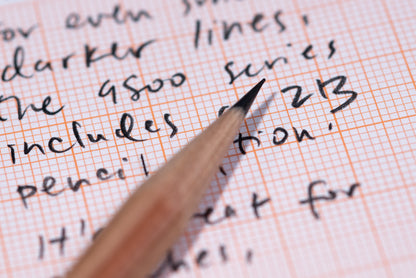 for even
darker lines,
the 9800 series
includes a 2B
pencil option.
It's great for